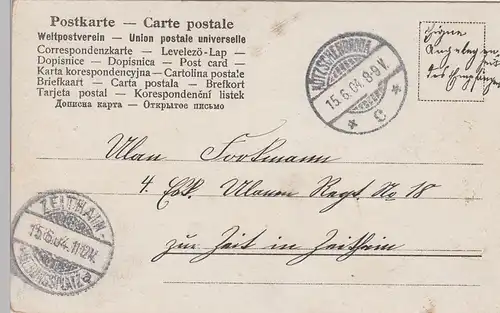 Postkarte — Carte postale
Weltpostverein — Union postale universelle
Correspondenzkarte — Levelező-Lap —
Dopisnice — Dopisnica — Post card —
Karta korespondencyjna — Cartolina postale
Briefkaart — Carta postala — Brefkort —
Tarjeta postal — Korespondenční lístek
Дописна карта — Открытое письмо
Eigne
Angelegenheit
des Empfängers
KÖTZSCHENBRODA
15.6.04. 8-9V.
* c *
Ulan Forkmann
4. Esk. Ulanen Regt. No 18
zur Zeit in Zeithain
ZEITHAIN-
15.6.04. 11-12V.
ÜBUNGSPLATZ